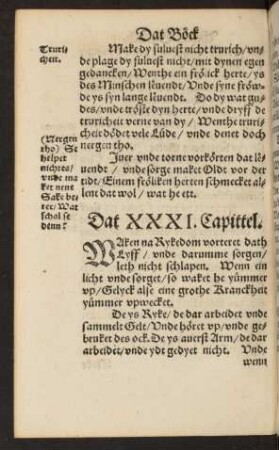 Dat Böck
Truri-
cheit.
Make dy süluest nicht trurich/ vn-
de plage dy süluest nicht/ mit dynen egen
gedancken/ Wente ein frölick herte/ ys
des Minschen leuendt/ Vnde syne fröw-
de ys syn lange leuendt. Do dy wat gu-
des/ vnde tröste dyn herte/ vnde dryff de
truricheit verne van dy/ Wente truri-
cheit dödet vele Lüde/ vnde denet doch
nergen tho.
(Nergen
tho) Se
helpet
nichtes/
vnde ma
ket nene
Sake be
ter: Wat
schal se
denn?
Iuer vnde torne vorkörten dat le-
uendt/ vnde sorge maket Oldt vor der
tidt/ Einem frölicken herten schmecket al-
lent dat wol/ wat he ett.
Dat XXXI. Capittel.
WAken na Rykedom vorteret dath
Lyff/ vnde darumme sorgen/
leth nicht schlapen. Wenn ein
licht vnde sorget/ so waket he yümmer
vp/ Gelyck alse eine grothe Kranckheit
yümmer vpwecket.
De ys Ryke/ de dar arbeidet vnde
sammelt Gelt/ Vnde höret vp/ vnde ge-
bruket des ock. De ys auerst Arm/ de dar
arbeidet/ vnde ydt gedyet nicht. Vnde
wenn